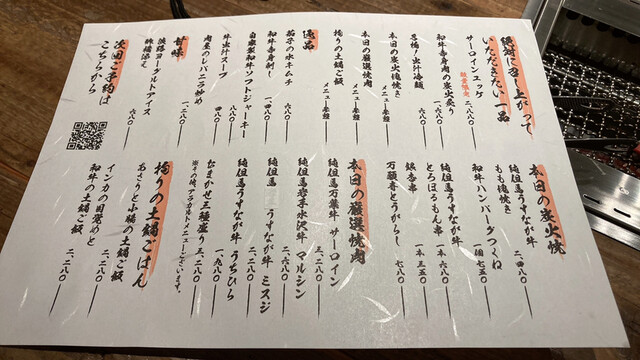 絶対に召し上がって
いただきたい一品
サーロインユッケ
数量限定
二、八八〇
和牛赤身肉の炭火炙り
一、六八〇
名物!出汁冷麺
六八〇
本日の炭火塊焼き
メニュー参照
本日の厳選焼肉
メニュー参照
拘りの土鍋ご飯
メニュー参照
逸品
茄子の水キムチ
六八〇
和牛赤身刺し
一、四八〇
自家製和牛ソフトジャーキー
八八〇
牛出汁スープ
四八〇
肉屋のレバニラ炒め
一、二八〇
甘味
淡路ヨーグルトアイス
六八〇
次回ご予約は
こちらから
本日の炭火焼
純但馬うすなが牛
もも塊焼き
二、四八〇
和牛ハンバーグつくね
一個七五〇
純但馬うすなが牛
とろほるもん串
一本六八〇
銀杏串
一本三五〇
万願寺とうがらし
七八〇
本日の厳選焼肉
純但馬万葉牛 サーロイン
三、二八〇
純但馬岩手水沢牛 マルシン
二、二八〇
純但馬うすなが牛 ミスジ
二、二八〇
純但馬うすなが牛 うちひら
一、九八〇
おまかせ三種盛り
三、二八〇
※その他、アラカルトメニューございます。
拘りの土鍋ごはん
あさりと小膓の土鍋ご飯
二、二八〇
インカの目覚めと
和牛の土鍋ご飯
二、二八〇